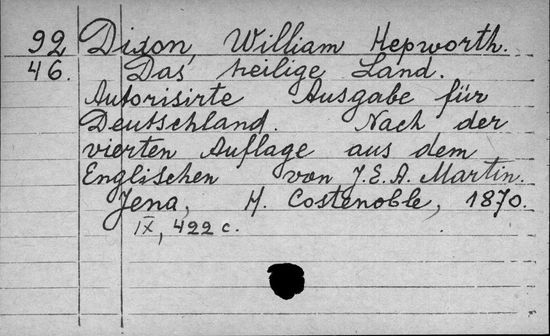 92 Dixon, William Hepworth.
46. Das heilige Land.
Autorisirte Ausgabe für
Deutschland. Nach der
vierten Auflage aus dem
Englischen von J. E. A. Martin.
Jena, H. Costenoble, 1870.
IX, 422 c.